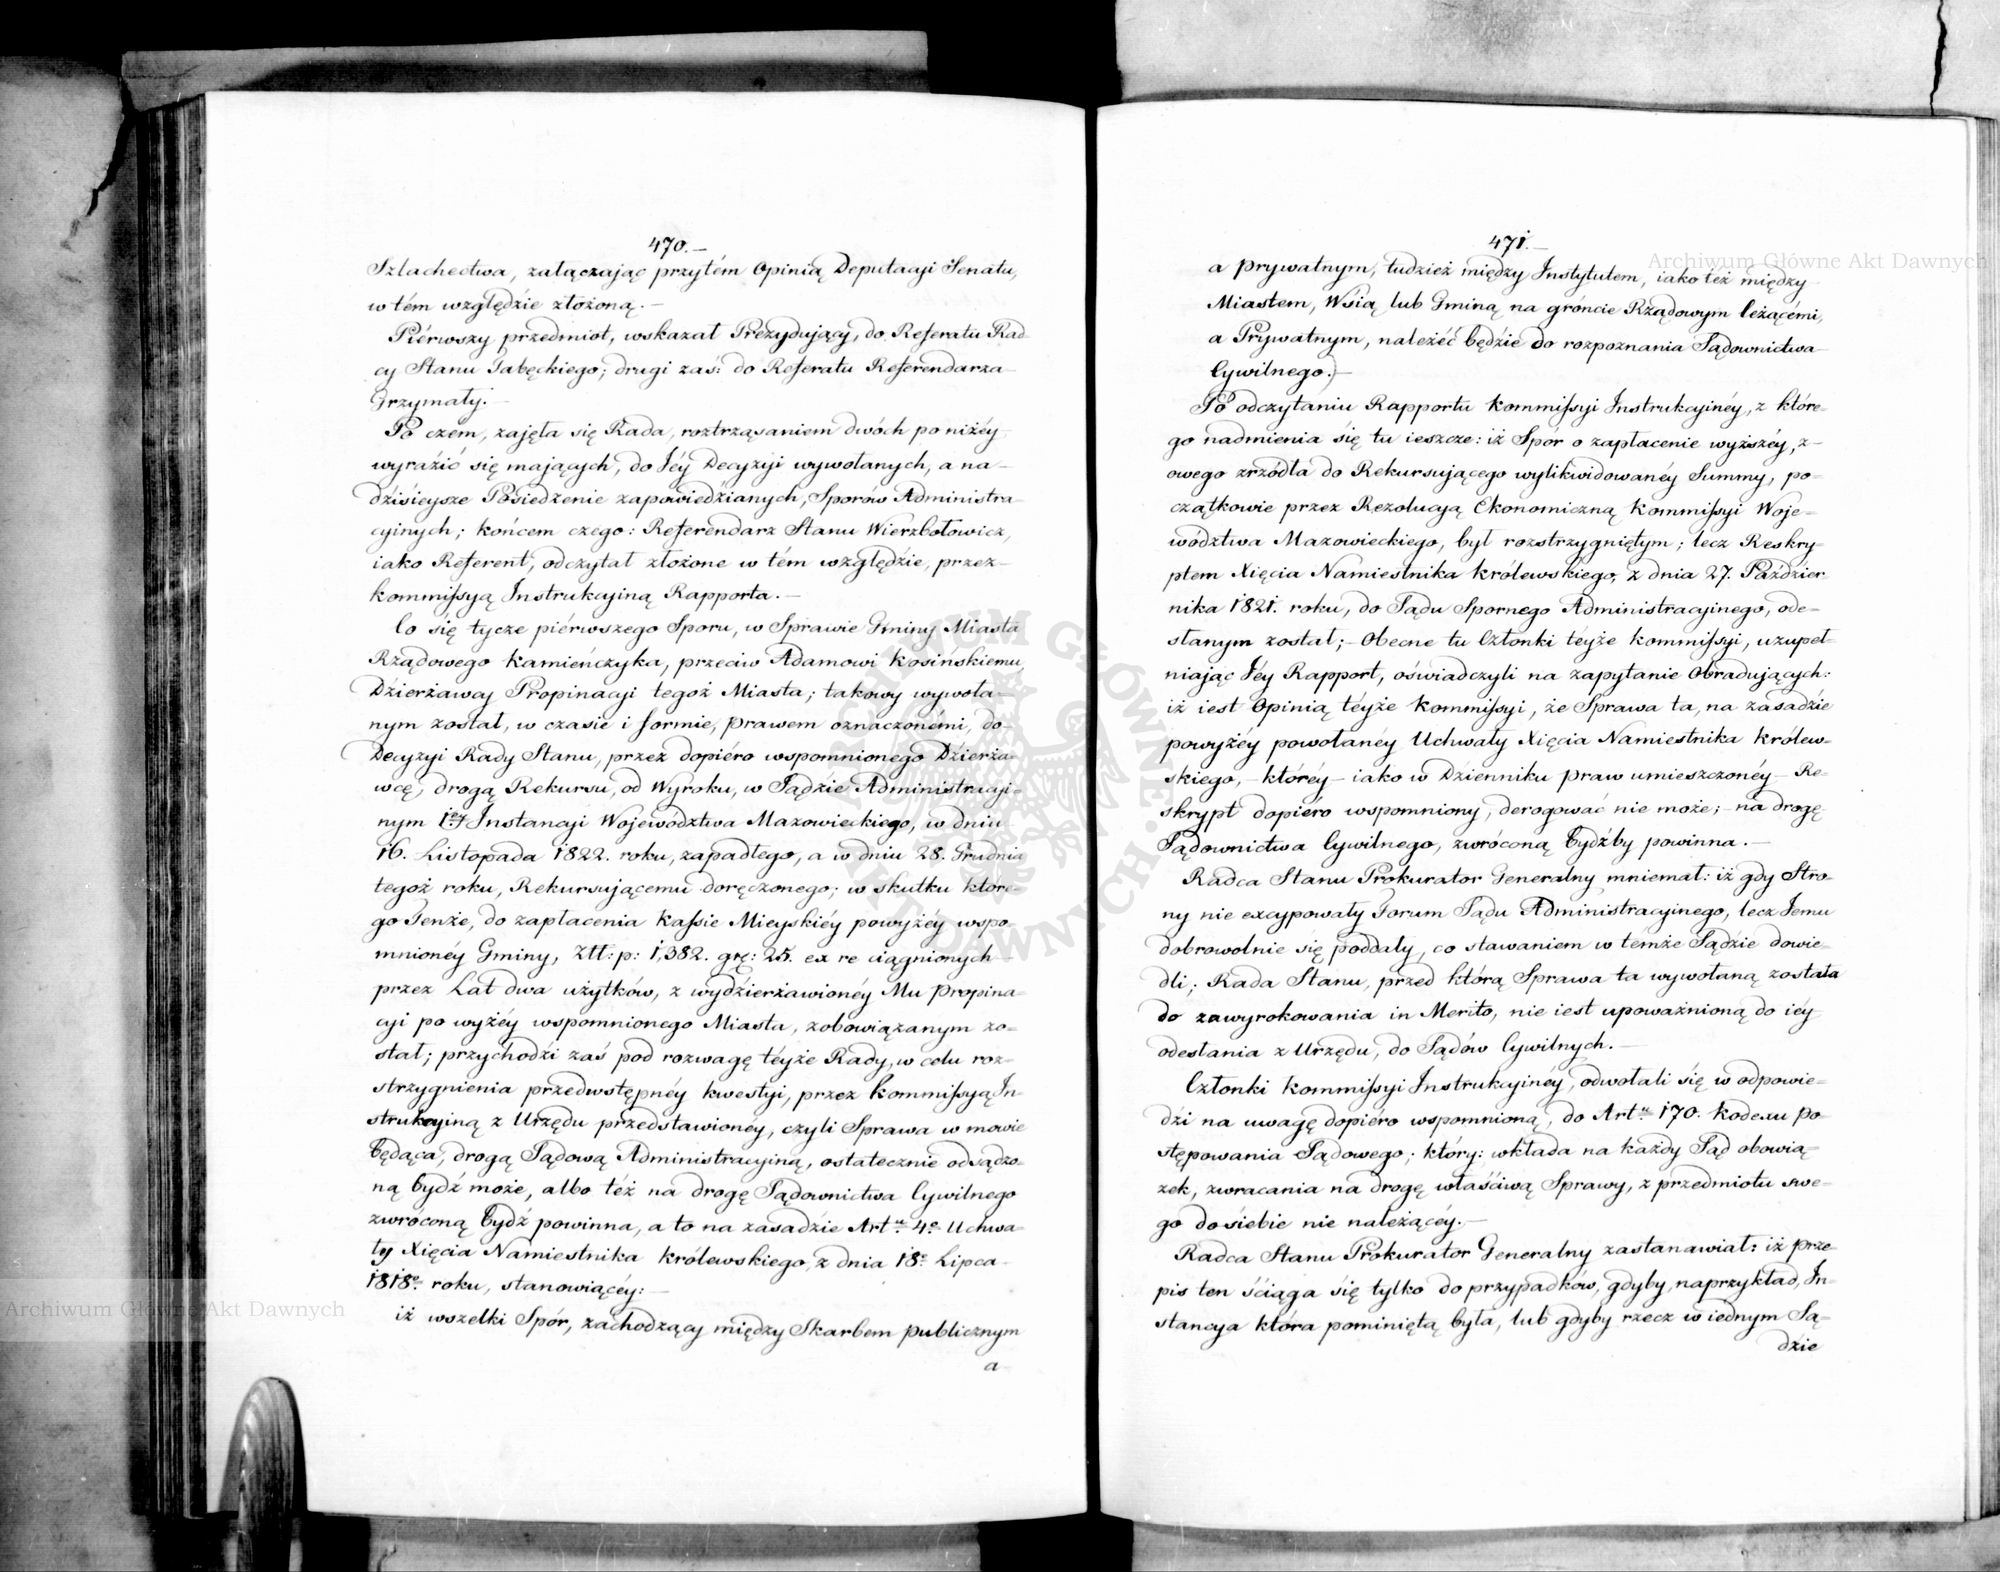 470.—
Szlachectwa, załączając przytém Opinią Deputacyi Senatu,
w tém względzie złożoną.—
Piérwszy przedmiot, wskazał Prezydujący, do Referatu Rad-
cy Stanu Gałęckiego; drugi zaś: do Referatu Referendarza
Grzymały.—
Po czém, zajęła się Rada, roztrząsaniem dwóch po niżéy
wyrazić się mających, do Jéy Decyzyi wywołanych, a na-
dzisieysze Posiedzenie zapowiedzianych, Sporów Administra-
cyinych; końcem czego: Referendarz Stanu Wierzbołowicz,
iako Referent, odczytał złożone w tém względzie, przez
Kommissyą Instrukcyiną Rapporta.—
Co się tycze piérwszego Sporu, w Sprawie Gminy Miasta
Rządowego Kamieńczyka, przeciw Adamowi Kosińskiemu,
Dzierżawcy Propinacyi tegoż Miasta; takowy wywoła-
nym został, w czasie i formie, prawem oznaczonémi, do
Decyzyi Rady Stanu, przez dopiéro wspomnionego Dzierża-
wcę, drogą Rekursu, od Wyroku, w Sądzie Administracyi-
nym 1éy Instancyi Województwa Mazowieckiego, w dniu
16. Listopada 1822. roku, zapadłego, a w dniu 28. Grudnia
tegoż roku, Rekursującemu doręczonego; w skutku które-
go Tenże, do zapłacenia Kassie Mieyskiéy powyżéy wspo-
mnionéy Gminy, Złł: p: 1,382. gr: 25. ex re ciągnionych
przez Lat dwa użytków, z wydzierżawionéy Mu Propina-
cyi po wyżéy wspomnionego Miasta, zobowiązanym zo-
stał; przychodzi zaś pod rozwagę téyże Rady, w celu roz-
strzygnienia przedwstępnéy kwestyi, przez Kommissyą In-
strukcyiną z Urzędu przedstawionéy, czyli Sprawa w mowie
będąca, drogą Sądową Administracyiną, ostatecznie odsądzo-
ną bydź może, albo téż na drogę Sądownictwa Cywilnego
zwróconą bydź powinna, a to na zasadzie Artu 4o Uchwa-
ły Xięcia Namiestnika Królewskiego, z dnia 18o Lipca
1818o roku, stanowiącéy:—
iż wszelki Spór, zachodzący między Skarbem publicznym
a
471.—
a prywatnym, tudzież między Instytutem, iako téż między
Miastem, Wsią, lub Gminą, na gróncie Rządowym leżącémi,
a Prywatnym, należéć będzie do rozpoznania Sądownictwa
Cywilnego.)—
Po odczytaniu Rapportu Kommissyi Instrukcyinéy, z które-
go nadmienia się tu ieszcze: iż Spór o zapłacenie wyższéy, z-
owego zrzódła do Rekursującego wylikwidowanéy Summy, po-
czątkowie przez Rezolucyą Ekonomiczną Kommissyi Woje-
wództwa Mazowieckiego, był rozstrzygniętym; lecz Reskry-
ptem Xięcia Namiestnika Królewskiego, z dnia 27. Paździer-
nika 1821. roku, do Sądu Spornego Administracyinego, ode-
słanym został;— Obecne tu Członki téyże Kommissyi, uzupeł-
niając Jéy Rapport, oświadczyli na zapytanie Obradujących:
iż iest Opinią téyże Kommissyi, że Sprawa ta, na zasadzie
powyżéy powołanéy Uchwały Xięcia Namiestnika Królew-
skiego,— któréy— iako w Dzienniku praw umieszczonéy— Re-
skrypt dopiéro wspomniony, derogować nie może;— na drogę
Sądownictwa Cywilnego, zwróconą bydźby powinna.—
Radca Stanu Prokurator Generalny mniemał: iż gdy Stro-
ny nie excypowały Forum Sądu Administracyinego, lecz Jemu
dobrowolnie się poddały, co stawaniem w témże Sądzie dowie-
dli; Rada Stanu, przed którą Sprawa ta wywołaną została
do zawyrokowania in Merito, nie iest upoważnioną do iéy
odesłania z Urzędu, do Sądów Cywilnych.—
Członki Kommissyi Instrukcyinéy, odwołali się w odpowie-
dzi na uwagę dopiéro wspomnioną, do Artu 170. Kodexu Po-
stępowania Sądowego; który: wkłada na każdy Sąd obowią-
zek, zwracania na drogę właściwą Sprawy, z przedmiotu swe-
go do siebie nie należącéy.—
Radca Stanu Prokurator Generalny zastanawiał: iż prze-
pis ten ściąga się tylko do przypadków, gdyby, naprzykład, In-
stancya która pominiętą była, lub gdyby rzecz w iednym Są-
dzie
Archiwum Główne Akt Dawnych
Archiwum Główne Akt Dawnych
ARCHIWUM GŁÓWNE AKT DAWNYCH